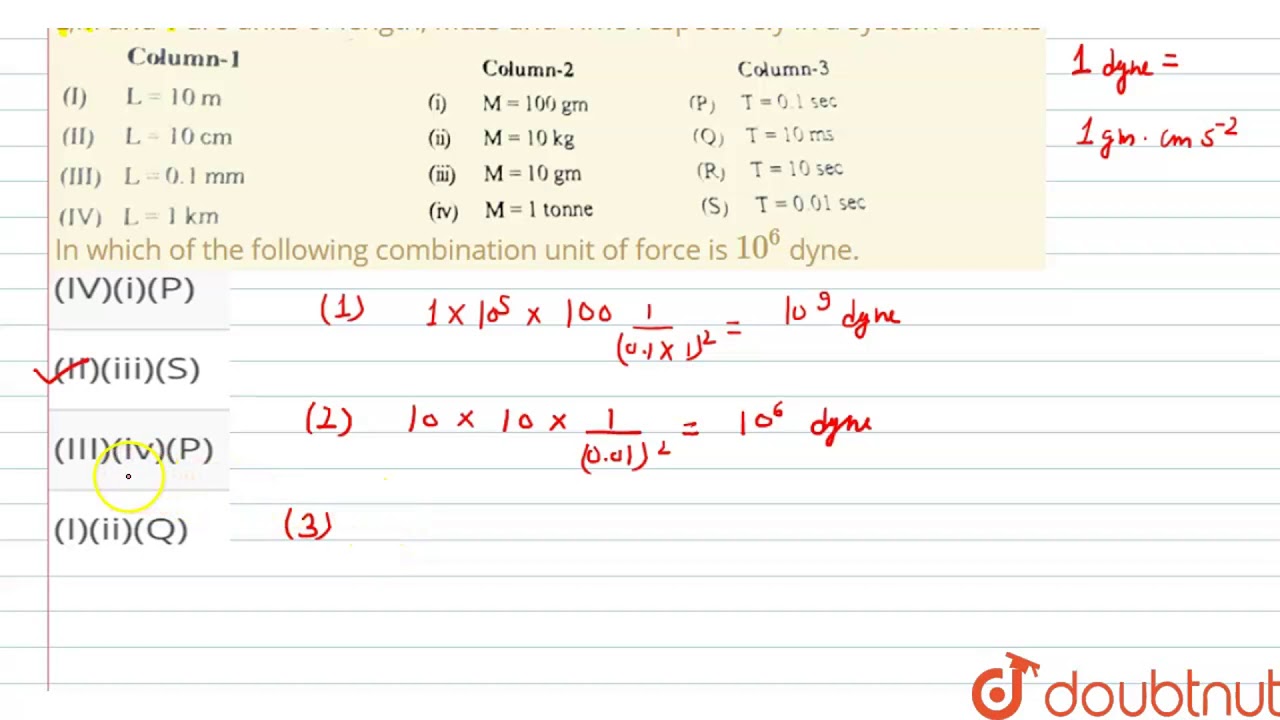 L, M and T are units of length, mass and Time respectively in a system of units
Column-1 Column-2 Column-3
(I) L = 10 m (i) M = 100 gm (P) T = 0.1 sec
(II) L = 10 cm (ii) M = 10 kg (Q) T = 10 ms
(III) L = 0.1 mm (iii) M = 10 gm (R) T = 10 sec
(IV) L = 1 km (iv) M = 1 tonne (S) T = 0.01 sec
In which of the following combination unit of force is 10⁶ dyne.
1 dyne =
1 gm · cm s⁻²
(IV)(i)(P)
(1) 1 × 10⁵ × 100 1/(0.1 × 1)² = 10⁹ dyne
(II)(iii)(S)
(2) 10 × 10 × 1/(0.01)² = 10⁶ dyne
(III)(iv)(P)
(I)(ii)(Q)
(3)
doubtnut